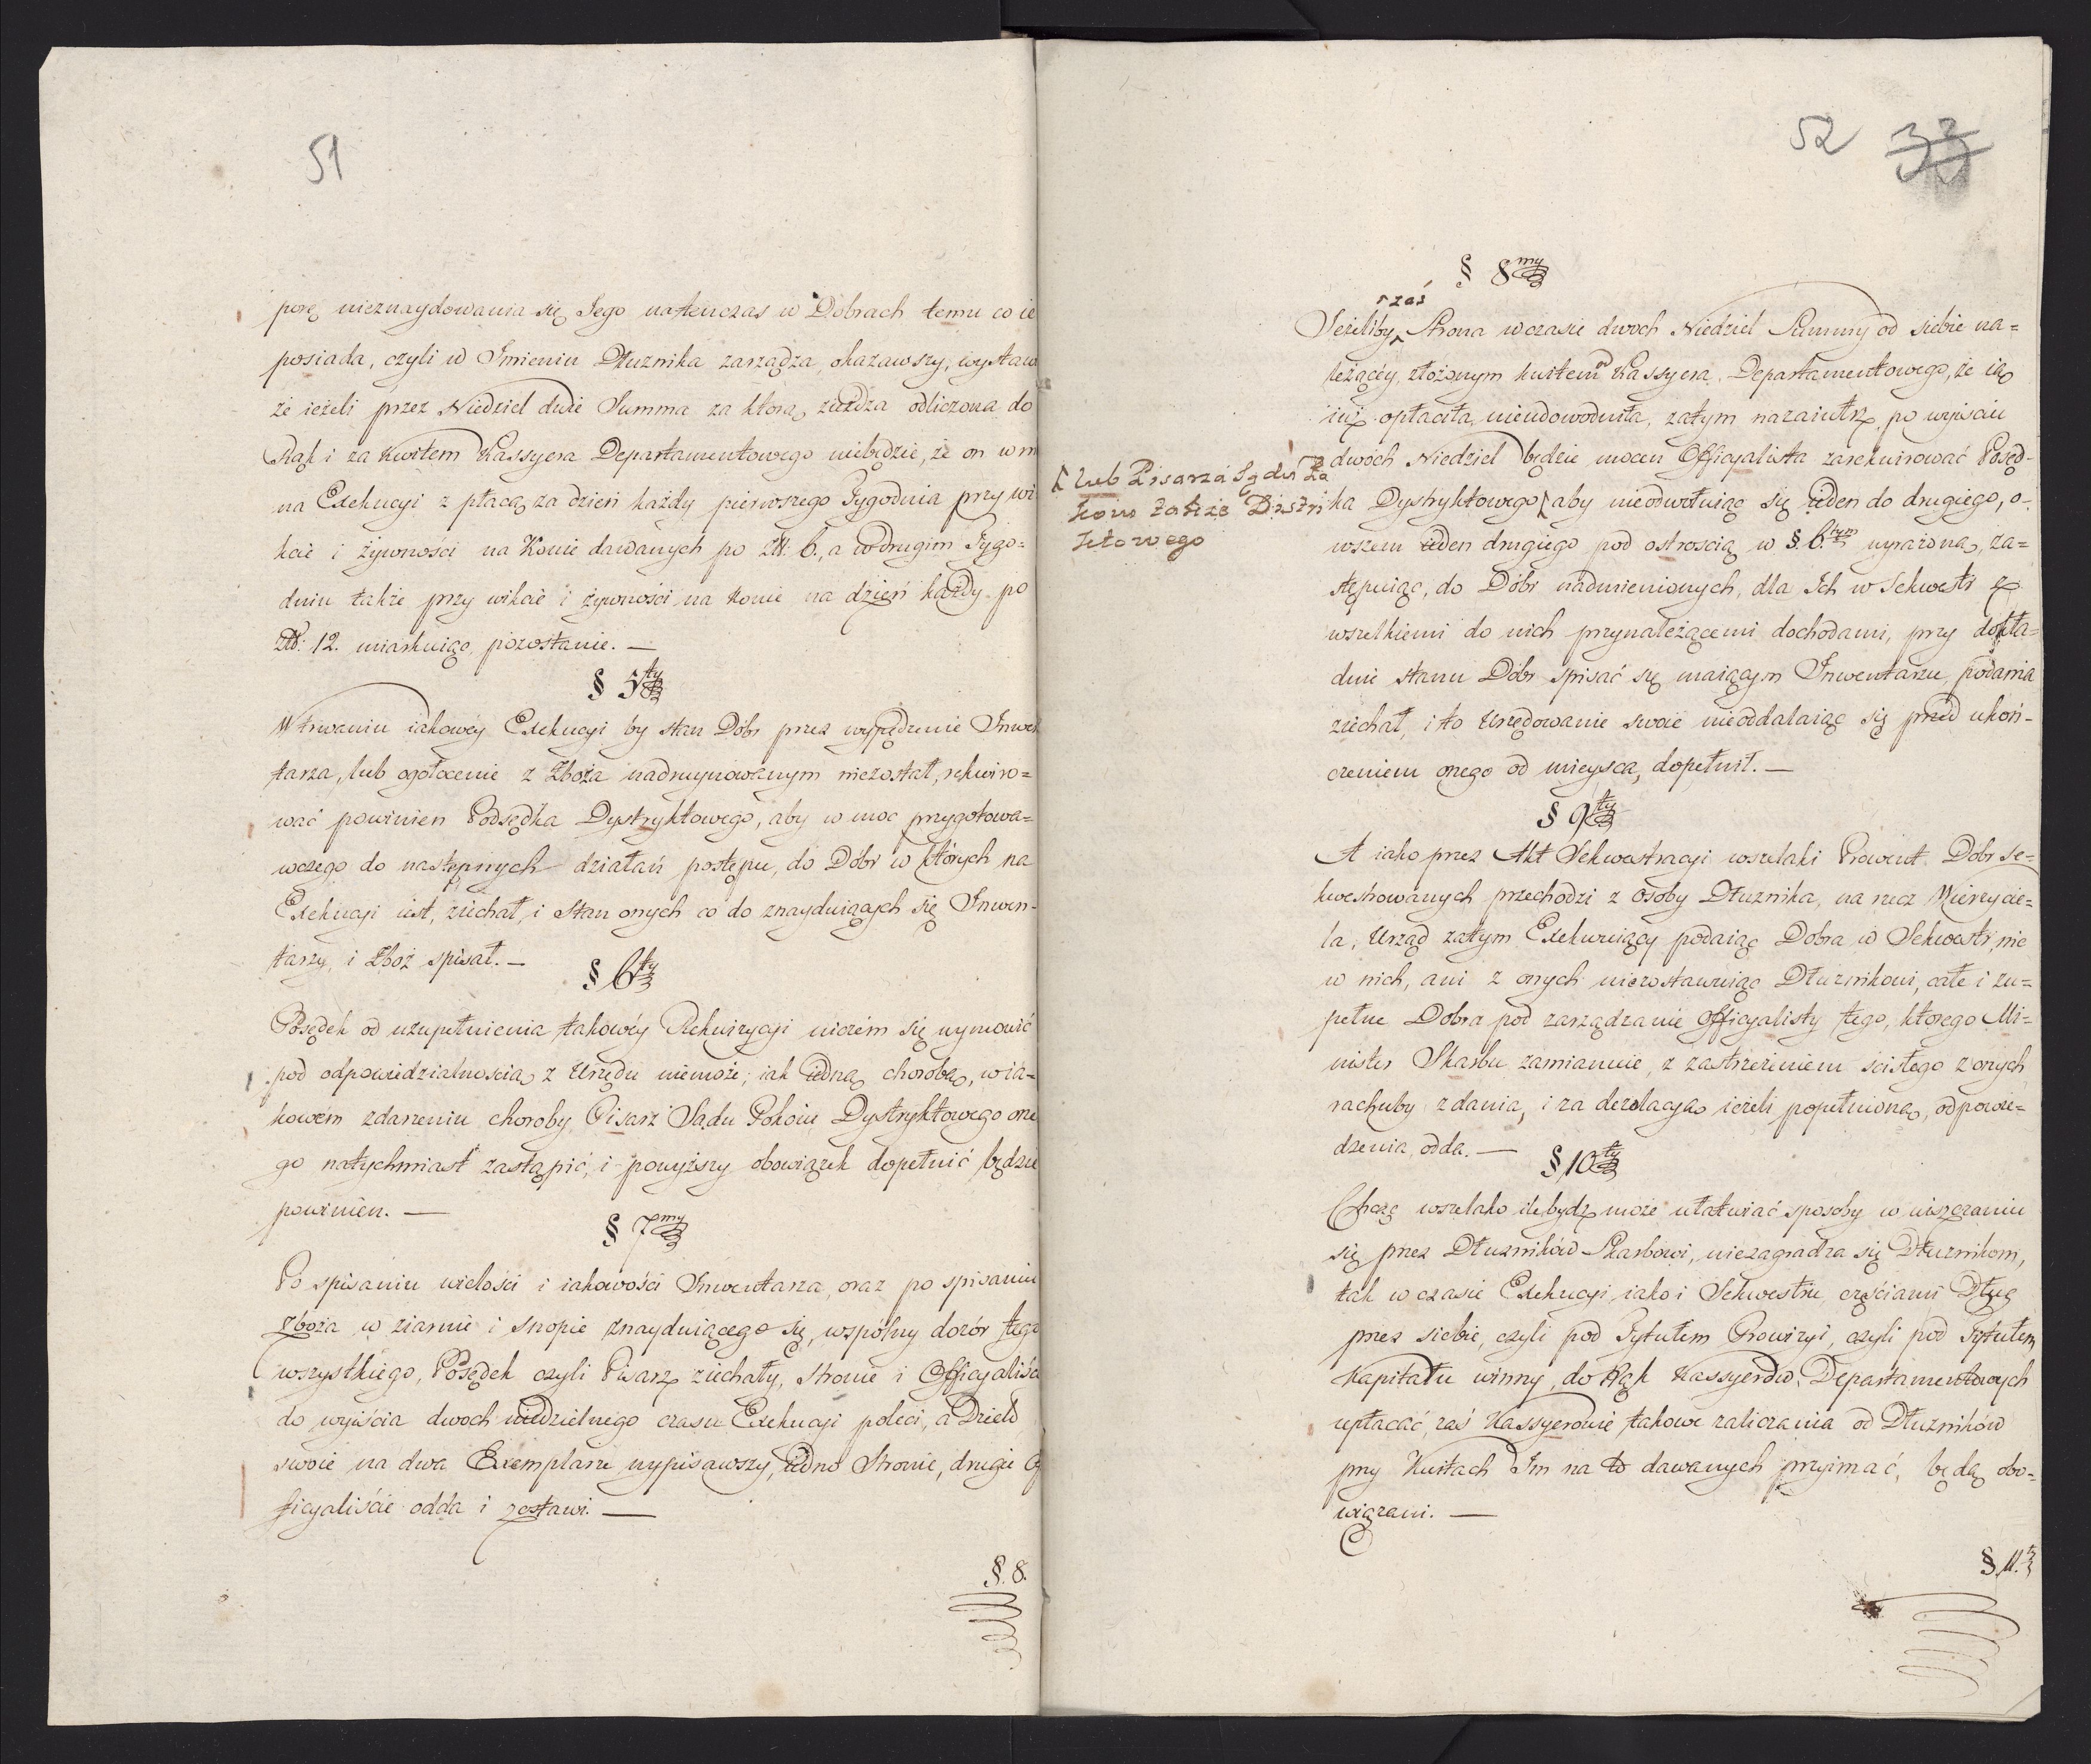 51
porę nieznaydowania się Jego natenczas w Dobrach temu co ie
posiada, czyli w Jmieniu Dłuznika zarządza, okazawszy, wystaw
że ieżeli przez Niedziel dwie Summa za którą ziezdza odliczona do
Rąk i za kwitem Kassyera Departamentowego niebędzie, że on w
na Exekucyi z płacą za dzień każdy pierwszego Tygodnia przy wi
kcie i żywności na Konie dawanych po Złł: 6., a w drugim Tygo=
dniu także przy wikcie i żywności na Konie na dzień każdy po
Złł: 12. miarkuiąc, pozostanie. —
§ 5ty
W trwaniu iakowéy Exekucyi by stan Dóbr przez wypędzenie Jnwen
tarza, lub ogołocenie z Zboża nadruynowanym niezostał, rekwiro=
wać powinien Podsędka Dystryktowego, aby w moc przygotowa=
wczego do następnych działań postępu, do Dóbr w których na
Exekucyi iest, ziechał, i stan onych co do znayduiących się Jnwen-
tarzy, i Zboż spisał. —
§ 6ty
Posędek od uzupełnienia takowéy Rekwizycyi niczém się wymowić
pod odpowiedzialnoscią z Urzędu niemoże; iak iedną chorobą, w ia-
kowem zdarzeniu choroby Pisarz Sądu Pokoiu Dystryktowego one
go natychmiast zastąpić, i powyższy obowiązek dopełnić będzie
powinien. —
§ 7my
Po spisaniu wielości i iakowości Jnwentarza, oraz po spisaniu
Zboża w ziarnie i snopie znayduiącego się, wspólny dozór tego
wszystkiego, Posędek czyli Pisarz ziechały, stronie i Officyaliśc
do wyiścia dwoch niedzielnego czasu Exekucyi poleci, a Dzieło
swoie na dwa Exemplarze wypisawszy, iedno Stronie, drugie Of
ficyaliście odda i zostawi. —
§. 8.
52 33
§ 8my
zaś
Jeżeliby Strona w czasie dwoch Niedziel Summy od siebie na=
leżącéy, złożonym kwitem Kassyera Departamentowego, że ią
iuż opłaciła, nieudowodniła, zatym nazaiutrz po wyiściu
dwóch Niedziel będzie mocen Officyalista zarekwirować Posęd-
lub Pisarza Sądu Po
koiu także Distri
ktowego
ka Dystryktowego aby nieodwołuiąc się ieden do drugiego, o-
wszem ieden drugiego pod ostroscią w §. 6.tym wyrażoną, za=
stępuiąc, do Dóbr nadmienionych, dla Jch w Sekwestr z
wszelkiemi do nich przynależącemi dochodami, przy dokła=
dnie stanu Dóbr spisać się maiącym Jnwentarzu, podania
ziechał, i to Urzędowanie swoie nieoddalaiąc się przed ukoń-
czeniem onego od mieysca, dopełnił. —
§ 9ty
A iako przez Akt Sekwestracyi wszelaki Prowent Dobr Se=
kwestrowanych przechodzi z Osoby Dłuznika, na rzecz Wierzycie=
la, Urząd zatym Exekwuiący podaiąc Dobra w Sekwestr, nic
w nich, ani z onych niezostawuiąc Dłuznikowi, całe i zu=
pełne Dobra pod zarządzanie Officyalisty tego, którego Mi=
nister Skarbu zamianuie, z zastrzeżeniem ścisłego z onych
rachuby zdania, i za dezolacyą ieżeli popełnioną, odpowie=
dzenia, odda. —
§ 10ty
Chcąc wszelako ile bydz może ułatwiać sposoby w uiszczaniu
się przez Dłuzników Skarbowi, niezagradza się Dłuznikom,
tak w czasie Exekucyi, iako i Sekwestru, częściami Dług
przez siebie, czyli pod Tytułem Prowizyi, czyli pod Tytułem
Kapitału winny, do Rąk Kassyerów Departamentowych
upłacać, zaś Kassyerowie takowe zaliczania od Dłuzników
przy Kwitach Jm na to dawanych przyimać, będą obo-
wiązani. —
§. 11.ty